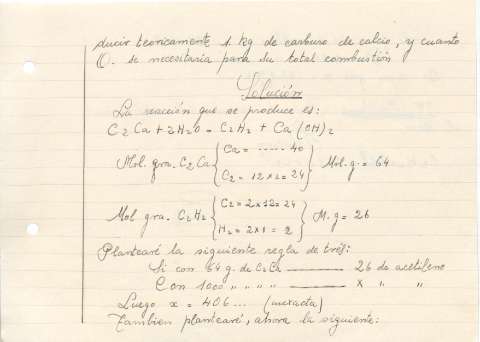 ducir teoricamente 1 kg de carburo de calcio, y cuanto
O. se necesitaria para su total combustión
Solución
La reacción que se produce es:
C2Ca + 2H2O = C2H2 + Ca(OH)2
Mol. gra. C2Ca { Ca = ...... 40
C2 = 12 x 2 = 24 } Mol. g. = 64
Mol gra. C2H2 { C2 = 2 x 12 = 24
H2 = 2 x 1 = 2 } M. g = 26
Plantearé la siguiente regla de tres:
Si con 64 g. de C2Ca ——— 26 de acetileno
Con 1000 " " " " ——— x " "
Luego x = 406... (inexacta)
Tambien plantearé, ahora la siguiente: